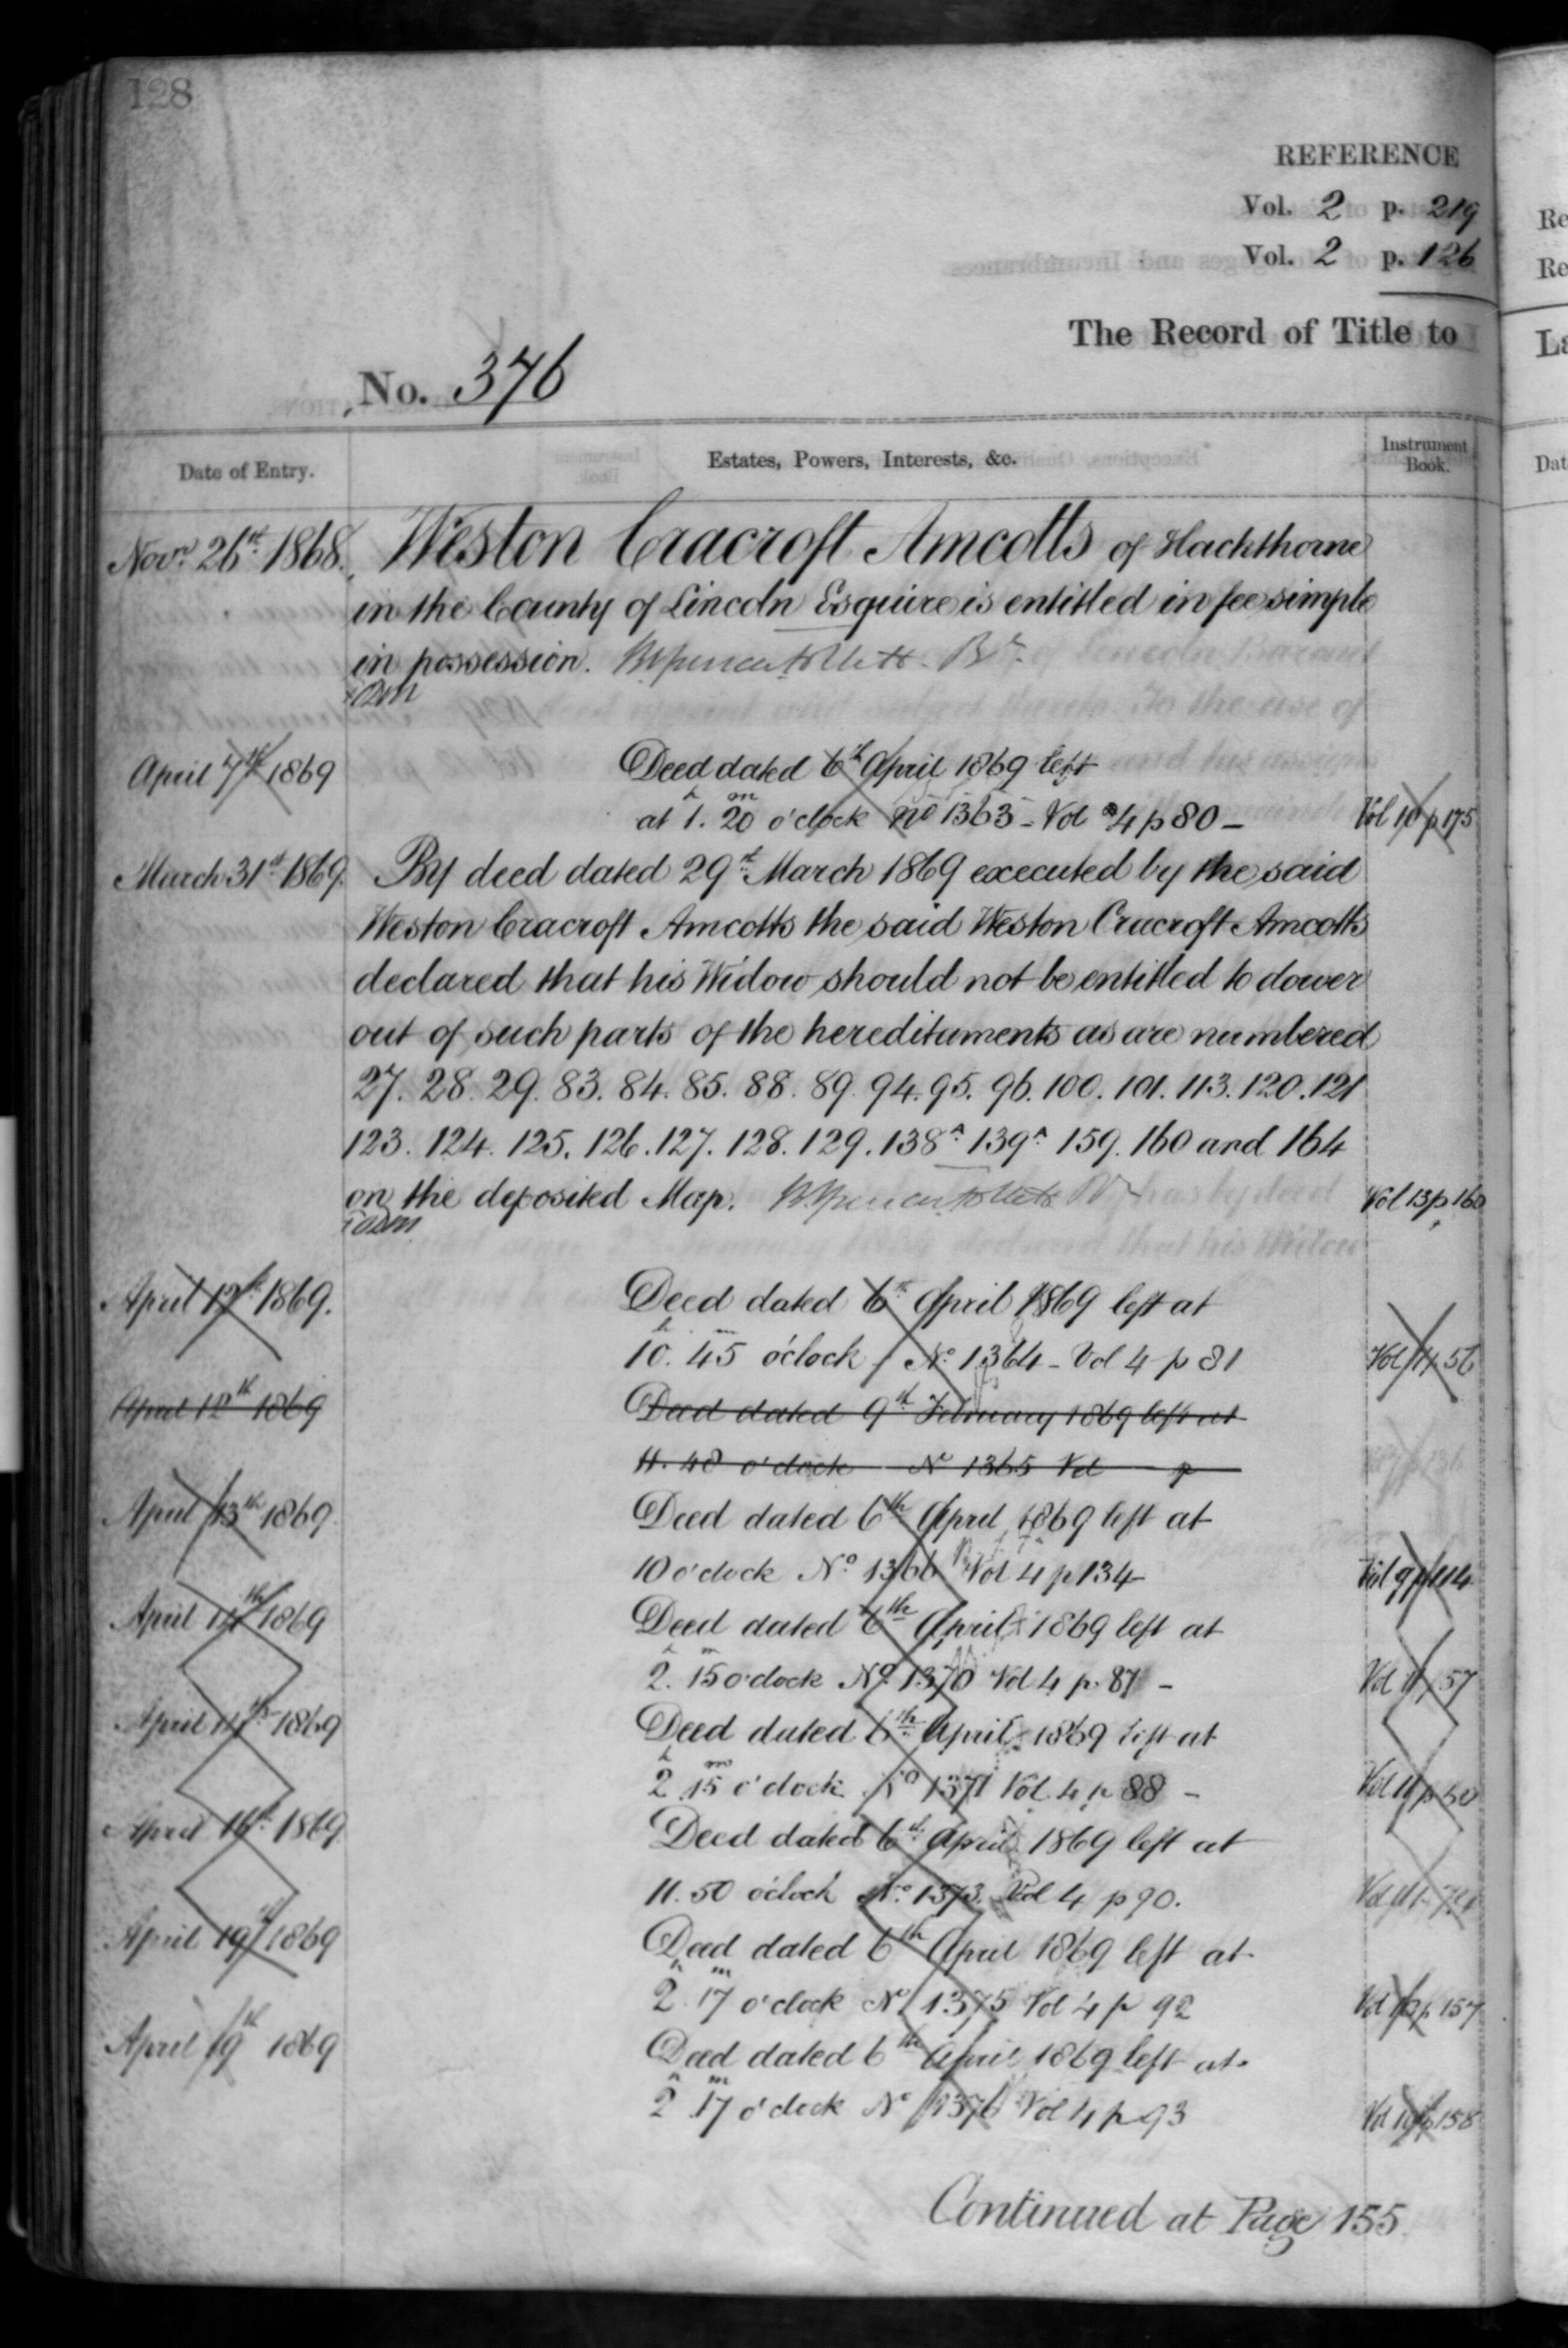 128
REFERENCE
Vol. 2 p. 219
Vol. 2 p. 126
The Record of Title to
No. 376
Date of Entry. Estates, Powers, Interests, &c. Instrument Book.
Novr 26th 1868. Weston Cracroft Amcotts of Hackthorne
in the County of Lincoln Esquire is entitled in fee simple
in possession.
April 7th 1869 Deed dated 6th April 1869 left
at 1h. 20m o'clock No 1363 - Vol 4 p 80 - Vol 10 p 175
March 31st 1869. By deed dated 29th March 1869 executed by the said
Weston Cracroft Amcotts the said Weston Cracroft Amcotts
declared that his Widow should not be entitled to dower
out of such parts of the hereditaments as are numbered
27. 28. 29. 83. 84. 85. 88. 89. 94. 95. 96. 100. 101. 113. 120. 121
123. 124. 125. 126. 127. 128. 129. 138A. 139A. 159. 160 and 164
on the deposited Map. Vol 13 p 160
April 12th 1869. Deed dated 6th April 1869 left at
10h. 45m o'clock No 1364 - Vol 4 p 81 Vol 11 p. 56
April 12th 1869 Deed dated 9th February 1869 left at
11. 48 o'clock No 1365 Vol p
April 13th 1869. Deed dated 6th April 1869 left at
10 o'clock No 1366 Vol 4 p 134 Vol 9 p 114
April 14th 1869 Deed dated 6th April 1869 left at
2h. 15m o'clock No 1370 Vol 4 p. 87 - Vol 11 p 57
April 14th 1869 Deed dated 6th April 1869 left at
2h 15m o'clock No 1371 Vol. 4 p 88 - Vol 11 p 50
April 16th 1869 Deed dated 6th April 1869 left at
11. 50 o'clock No 1373. Vol 4 p 90.
April 19th 1869 Deed dated 6th April 1869 left at
2h 17m o'clock No 1375 Vol 4 p 92 157
April 19th 1869 Deed dated 6th April 1869 left at
2h 17m o'clock No 1376 Vol 4 p 93 158
Continued at Page 155